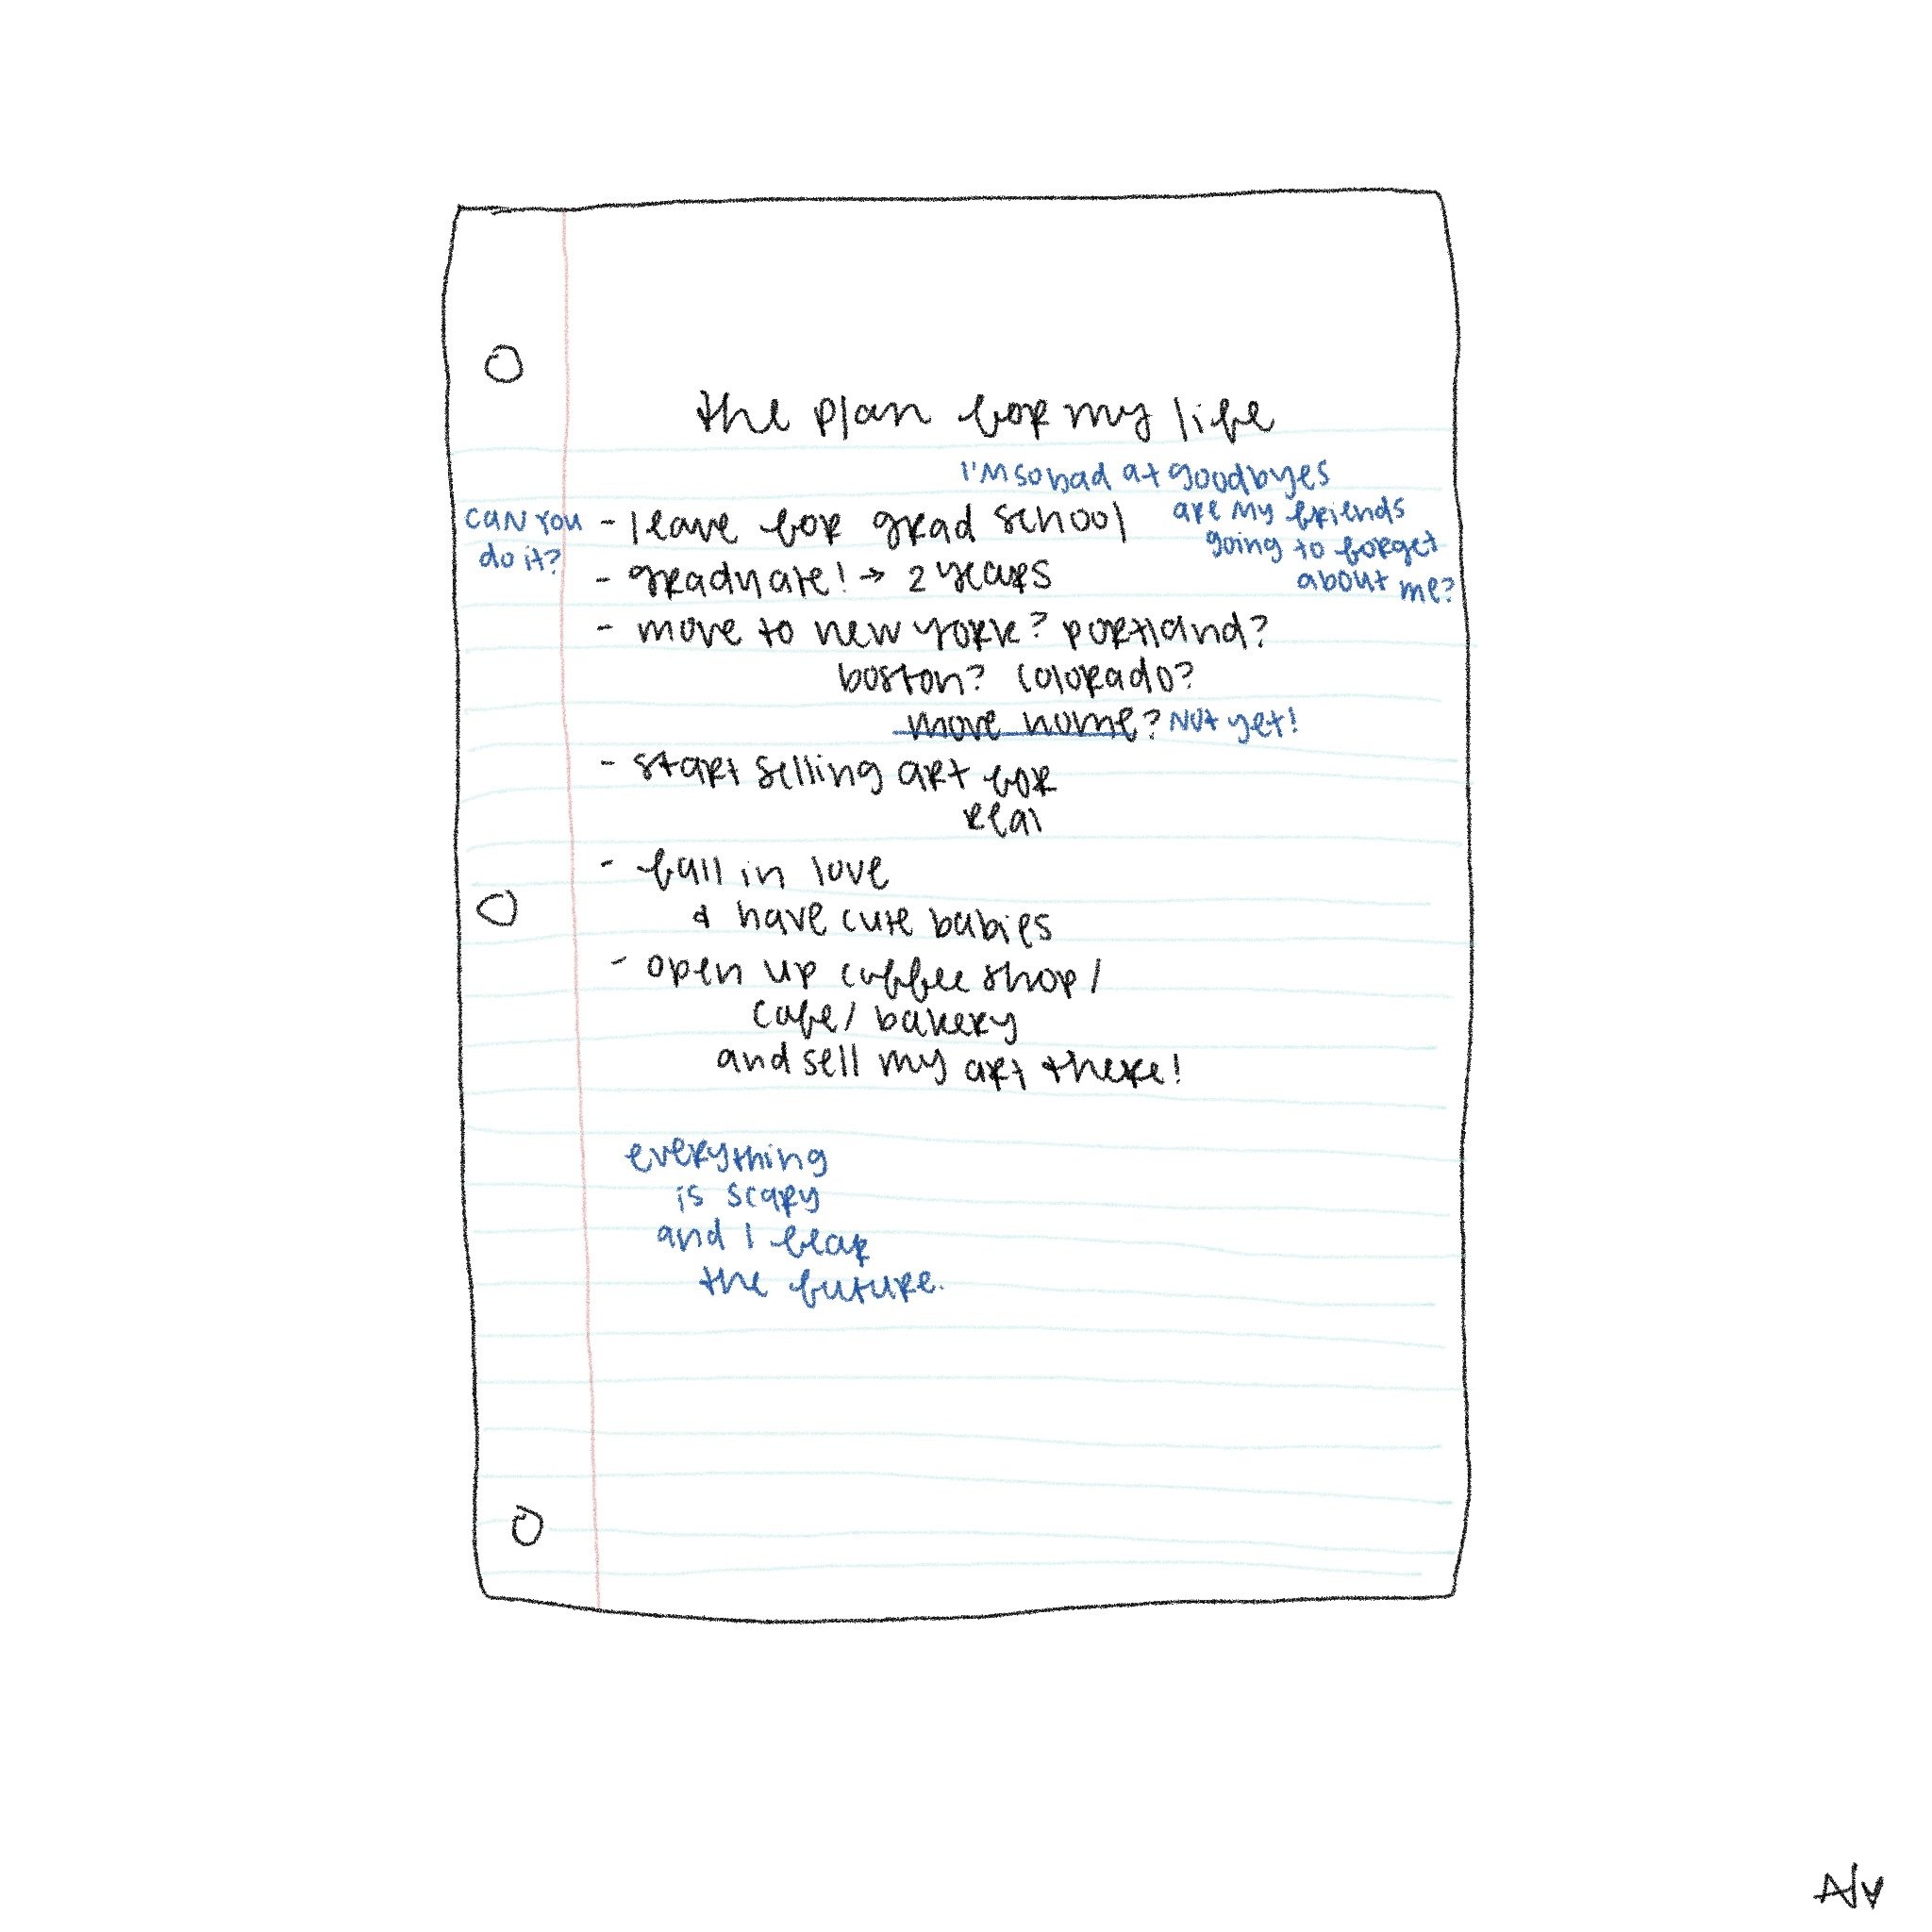 the plan for my life
I'm so bad at goodbyes
can you
do it?
- leave for grad school
are my friends
going to forget
about me?
- graduate! → 2 years
- move to new york? portland?
boston? colorado?
move home? Not yet!
- start selling art for
real
- fall in love
& have cute babies
- open up coffee shop/
cafe/ bakery
and sell my art there!
everything
is scary
and I fear
the future.